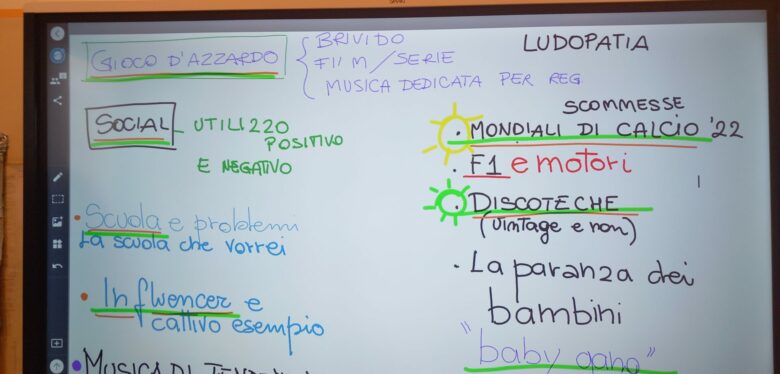 GIOCO D'AZZARDO
BRIVIDO
FILM/SERIE
MUSICA DEDICATA PER REG
SOCIAL - UTILIZZO
POSITIVO
E NEGATIVO
• Scuola e problemi
La scuola che vorrei
• Influencer e
cattivo esempio
• MUSICA DI
LUDOPATIA
SCOMMESSE
• MONDIALI DI CALCIO '22
• F1 e motori
• DISCOTECHE
(vintage e non)
• La paranza dei
bambini
"baby gang"